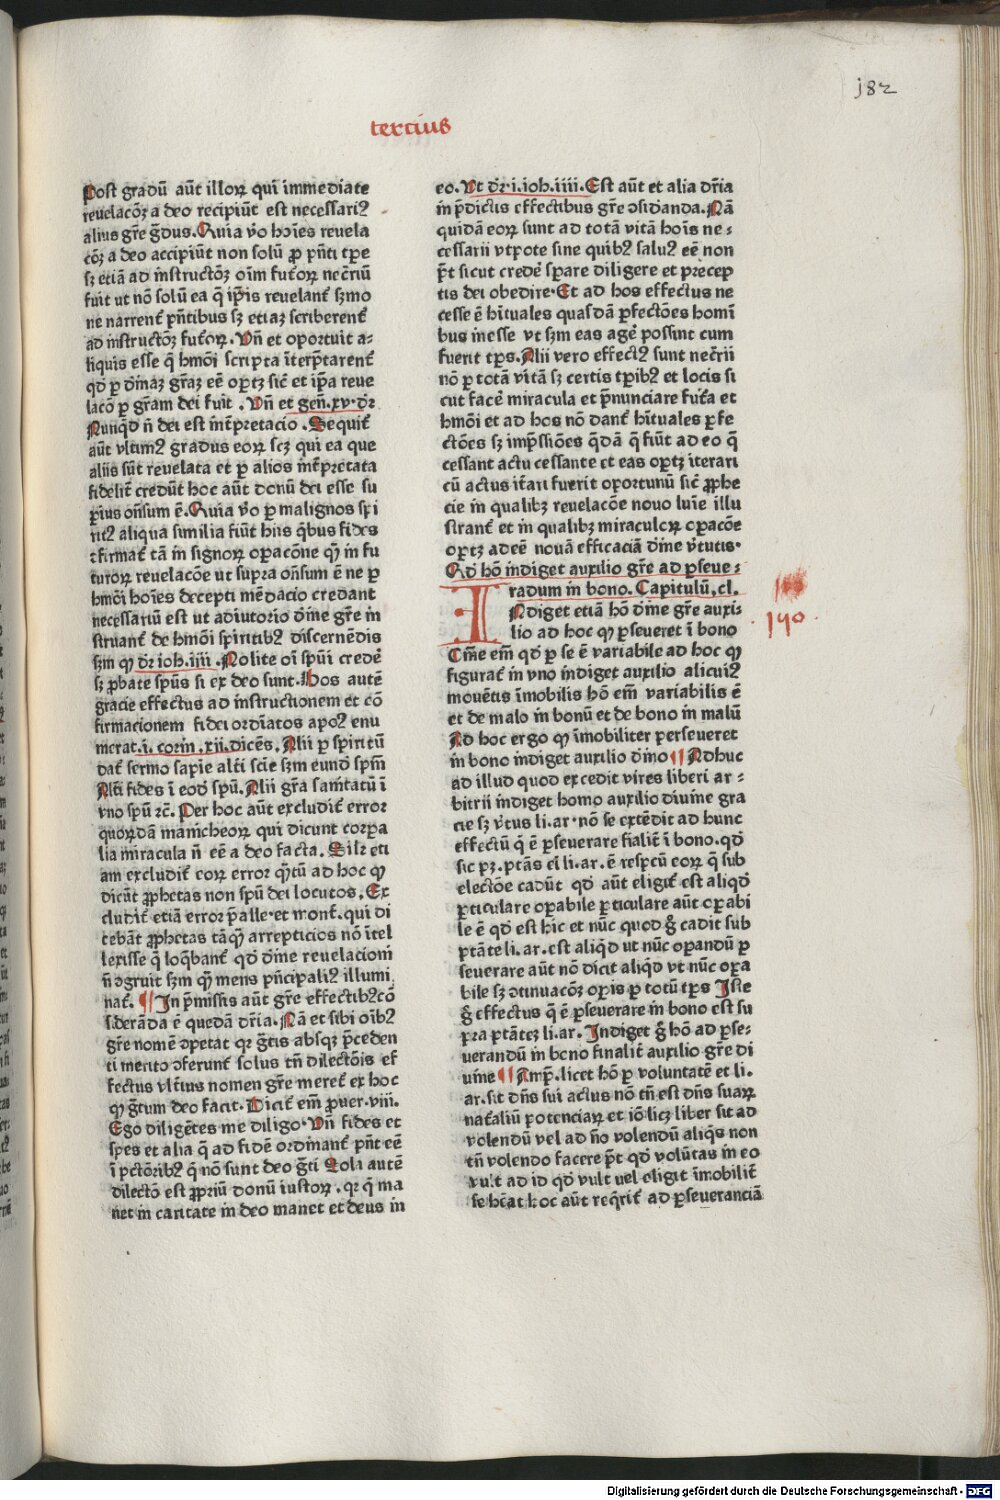 182
tercius
Post gradū aūt illoꝝ qui immediate
reuelacōꝫ a deo recipiūt est necessariꝰ
alius gr̄e g̃dus. Quia v̊o hoīes reuela
cōꝫ a deo accipiūt non solū ꝓ pn̄ti tꝑe
sꝫ etiā ad instructōꝫ oīm futoꝝ nec̄riū
fuit ut nō solū ea q̄ ip̄is reuelant᷒ sꝫmo
ne narrent᷒ pn̄tibus sꝫ etiaꝫ scriberent᷒
ad instructōꝫ futoꝝ. Vn̄ et oportuit a-
liquis esse q̄ hmōi scripta īterp̄tarent᷒
qd̄ ꝑ diuinaꝫ gr̄aꝫ eē oꝑtꝫ sic̄ et ip̄a reue
lacō ꝑ gr̄am dei fuit. Vn̄ et gen̄.xv. dr̄
Nunq̄d n̄ dei est int̄pretacio. Sequit᷒
aūt vltimꝰ gradus eoꝝ scꝫ qui ea que
aliis sūt reuelata et ꝑ alios int̄pretata
fidelit᷒ credūt hoc aūt donū dei esse su
ꝑius on̄sum ē. Quia v̊o ꝑ malignos sp̄i
ritꝰ aliqua similia fiūt hiis q̄bus fides
ꝯfirmat᷒ tā in signoꝝ oꝑacōne qꝫ in fu
turoꝝ reuelacōe ut supra on̄sum ē ne ꝑ
hmōi hoīes decepti mēdacio credant
necessariū est ut adiutorio diuīe gr̄e in
struant᷒ de hmōi spiritibꝰ discernēdis
sꝫm qꝫ dr̄ ioh. iiii. Nolite oī spūi credē
sꝫ ꝓbate spūs si ex deo sunt. Hos autē
gracie effectus ad instructionem et cō
firmacionem fidei ordīatos apoꝰ enu
merat. i. corin. xii. dicēs. Alii ꝑ spiritū
dat᷒ sermo sapie alt̄i scīe sꝫm eund̄ spm̄
Alt̄i fides ī eod̄ spū. Alii gr̄a sanitatū ī
vno spū ⁊c̄. Per hoc aūt excludit᷒ error
quorūdā manicheoꝝ qui dicunt corpa
lia miracula n̄ eē a deo facta. Silr̄ eti
am excludit᷒ eoꝝ error q̄tū ad hoc qꝫ
dicūt ꝓphetas non spū dei locutos. Ex
cludit᷒ etiā error p̄alle et mont̄. qui di
cebāt ꝓphetas tāqꝫ arrepticios nō ītel
lexisse q̄ loq̄bant᷒ qd̄ diuīe reuelacioni
n̄ ꝯgruit sꝫm qꝫ mens p̄ncipaliꝰ illumi
nat᷒. ¶ In p̄missis aūt gr̄e effectibꝰ cō
siderāda ē quedā dr̄ia. Nā et si tibi oībꝰ
gr̄e nomē ꝯpetat qꝛ g̃tis absqꝫ p̄ceden
ti merito ꝯferunt᷒ solus tn̄ dilectōis ef
fectus vlt̄ius nomen gr̄e meret᷒ ex hoc
qꝫ g̃tum deo facit. Dicit᷒ em̄ ꝓuer. viii.
Ego diligētes me diligo. Vn̄ fides et
spes et alia q̄ ad fidē ordinant᷒ pn̄t eē
ī pctōribꝰ q̄ nō sunt deo g̃ti Sola autē
dilectō est ꝓpriū donū iustoꝝ. qꝛ q̄ ma
net in caritate in deo manet et deus in
eo. Vt dr̄. i. ioh. iiii. Est aūt et alia dr̄ia
in p̄dictis effectibus gr̄e ꝯsid̄anda. Nā
quidā eoꝝ sunt ad totā vitā hoīs ne-
cessarii vtpote sine quibꝰ saluꝰ eē non
p̄t sicut credē sperare diligere et precep
tis dei obedire. Et ad hos effectus ne
cesse ē hītuales quasdā ꝑfectōes homī
bus inesse vt sꝫm eas agē possint cum
fuerit tꝑs. Alii vero effectꝰ sunt nec̄rii
nō ꝑ totā vitā sꝫ certis tꝑibꝰ et locis si
cut facē miracula et p̄nunciare futa et
hmōi et ad hos nō dant᷒ hītuales ꝑfe
ctōes sꝫ imp̄ssiōes q̄dā q̄ fiūt a deo q̄
cessant actu cessante et eas oꝑtꝫ iterari
cū actus itari fuerit oportunū sic̄ ꝓphe
cie in qualibꝫ reuelacōe nouo luīe illu
strant᷒ et in qualibꝫ miraculoꝝ oꝑacōe
oꝑtꝫ adeē nouā efficaciā diuīe v̄tutis.
Qd̄ hō indiget auxilio gr̄e ad ꝑseue-
radum in bono. Capitulū. cl.
INdiget etiā hō diuīe gr̄e auxi-
lio ad hoc qꝫ ꝑseueret ī bono
Om̄e em̄ qd̄ ꝑ se ē variabile ad hoc qꝫ
figurat᷒ in vno indiget auxilio alicuiꝰ
mouētis īmobilis hō em̄ variabilis ē
et de malo in bonū et de bono in malū
Ad hoc ergo qꝫ īmobiliter perseueret
in bono indiget auxilio diuīo ¶ Adhuc
ad illud quod excedit vires liberi ar-
bitrii indiget homo auxilio diuine gra
cie sꝫ v̄tus li. ar. nō se extēdit ad hunc
effectū q̄ ē ꝑseuerare fīalit᷒ ī bono. qd̄
sic pꝫ. ptās em̄ li. ar. ē respcū eoꝝ q̄ sub
electōe cadūt qd̄ aūt eligit᷒ est aliqd̄
ꝑticulare oꝑabile ꝑticulare aūt oꝑabi
le ē qd̄ est hic et nūc quod g̊ cadit sub
ptāte li. ar. est aliqd̄ ut nūc oꝑandū ꝑ
seuerare aūt nō dicit aliqd̄ vt nūc oꝑa
bile sꝫ ꝯtinuacōꝫ oꝑis ꝑ totū tꝑs Iste
g̊ effectus q̄ ē ꝑseuerare in bono est su
ꝑra ptātēꝫ li. ar. Indiget g̊ hō ad ꝑse-
uerandū in bono finalit᷒ auxilio gr̄e di
uine ¶ Amp̄. licet hō ꝑ voluntatē et li.
ar. sit dn̄s sui actus nō tn̄ est dn̄s suaꝝ
nat᷒aliū potenciaꝝ et iō licꝫ liber sit ad
volendū vel ad n̄o volendū aliq̄s non
tn̄ volendo facere p̄t qd̄ volūtas in eo
vult ad id qd̄ vult uel eligit īmobilit᷒
se hēat hoc aūt req̄rit᷒ ad ꝑseueranciā
140
Digitalisierung gefördert durch die Deutsche Forschungsgemeinschaft - DFG